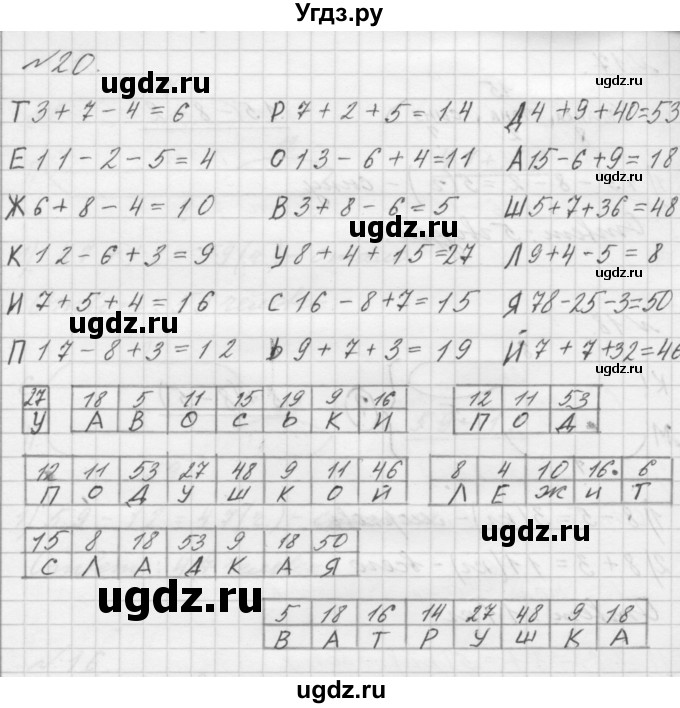 Угдз.ру
№20.
ugdz.ru ugdz.ru
Т 3+7-4=6 Р 7+2+5=14 Д 4+9+40=53
Е 11-2-5=4 О 13-6+4=11 А 15-6+9=18
Ж 6+8-4=10 В 3+8-6=5 Ш 5+7+36=48
ugdz.ru
К 12-6+3=9 У 8+4+15=27 Л 9+4-5=8
И 7+5+4=16 С 16-8+7=15 Я 78-25-3=50
ugdz.ru
П 17-8+3=12 Ь 9+7+3=19 Й 7+7+32=46
27 18 5 11 15 19 9 16 12 11 53
У А В О С Ь К И П О Д
12 11 53 27 48 9 11 46 8 4 10 16 6
П О Д У Ш К О Й Л Е Ж И Т
15 8 18 53 9 18 50
ugdz.ru
С Л А Д К А Я
ugdz.ru
5 18 16 14 27 48 9 18
В А Т Р У Ш К А
ugdz.ru